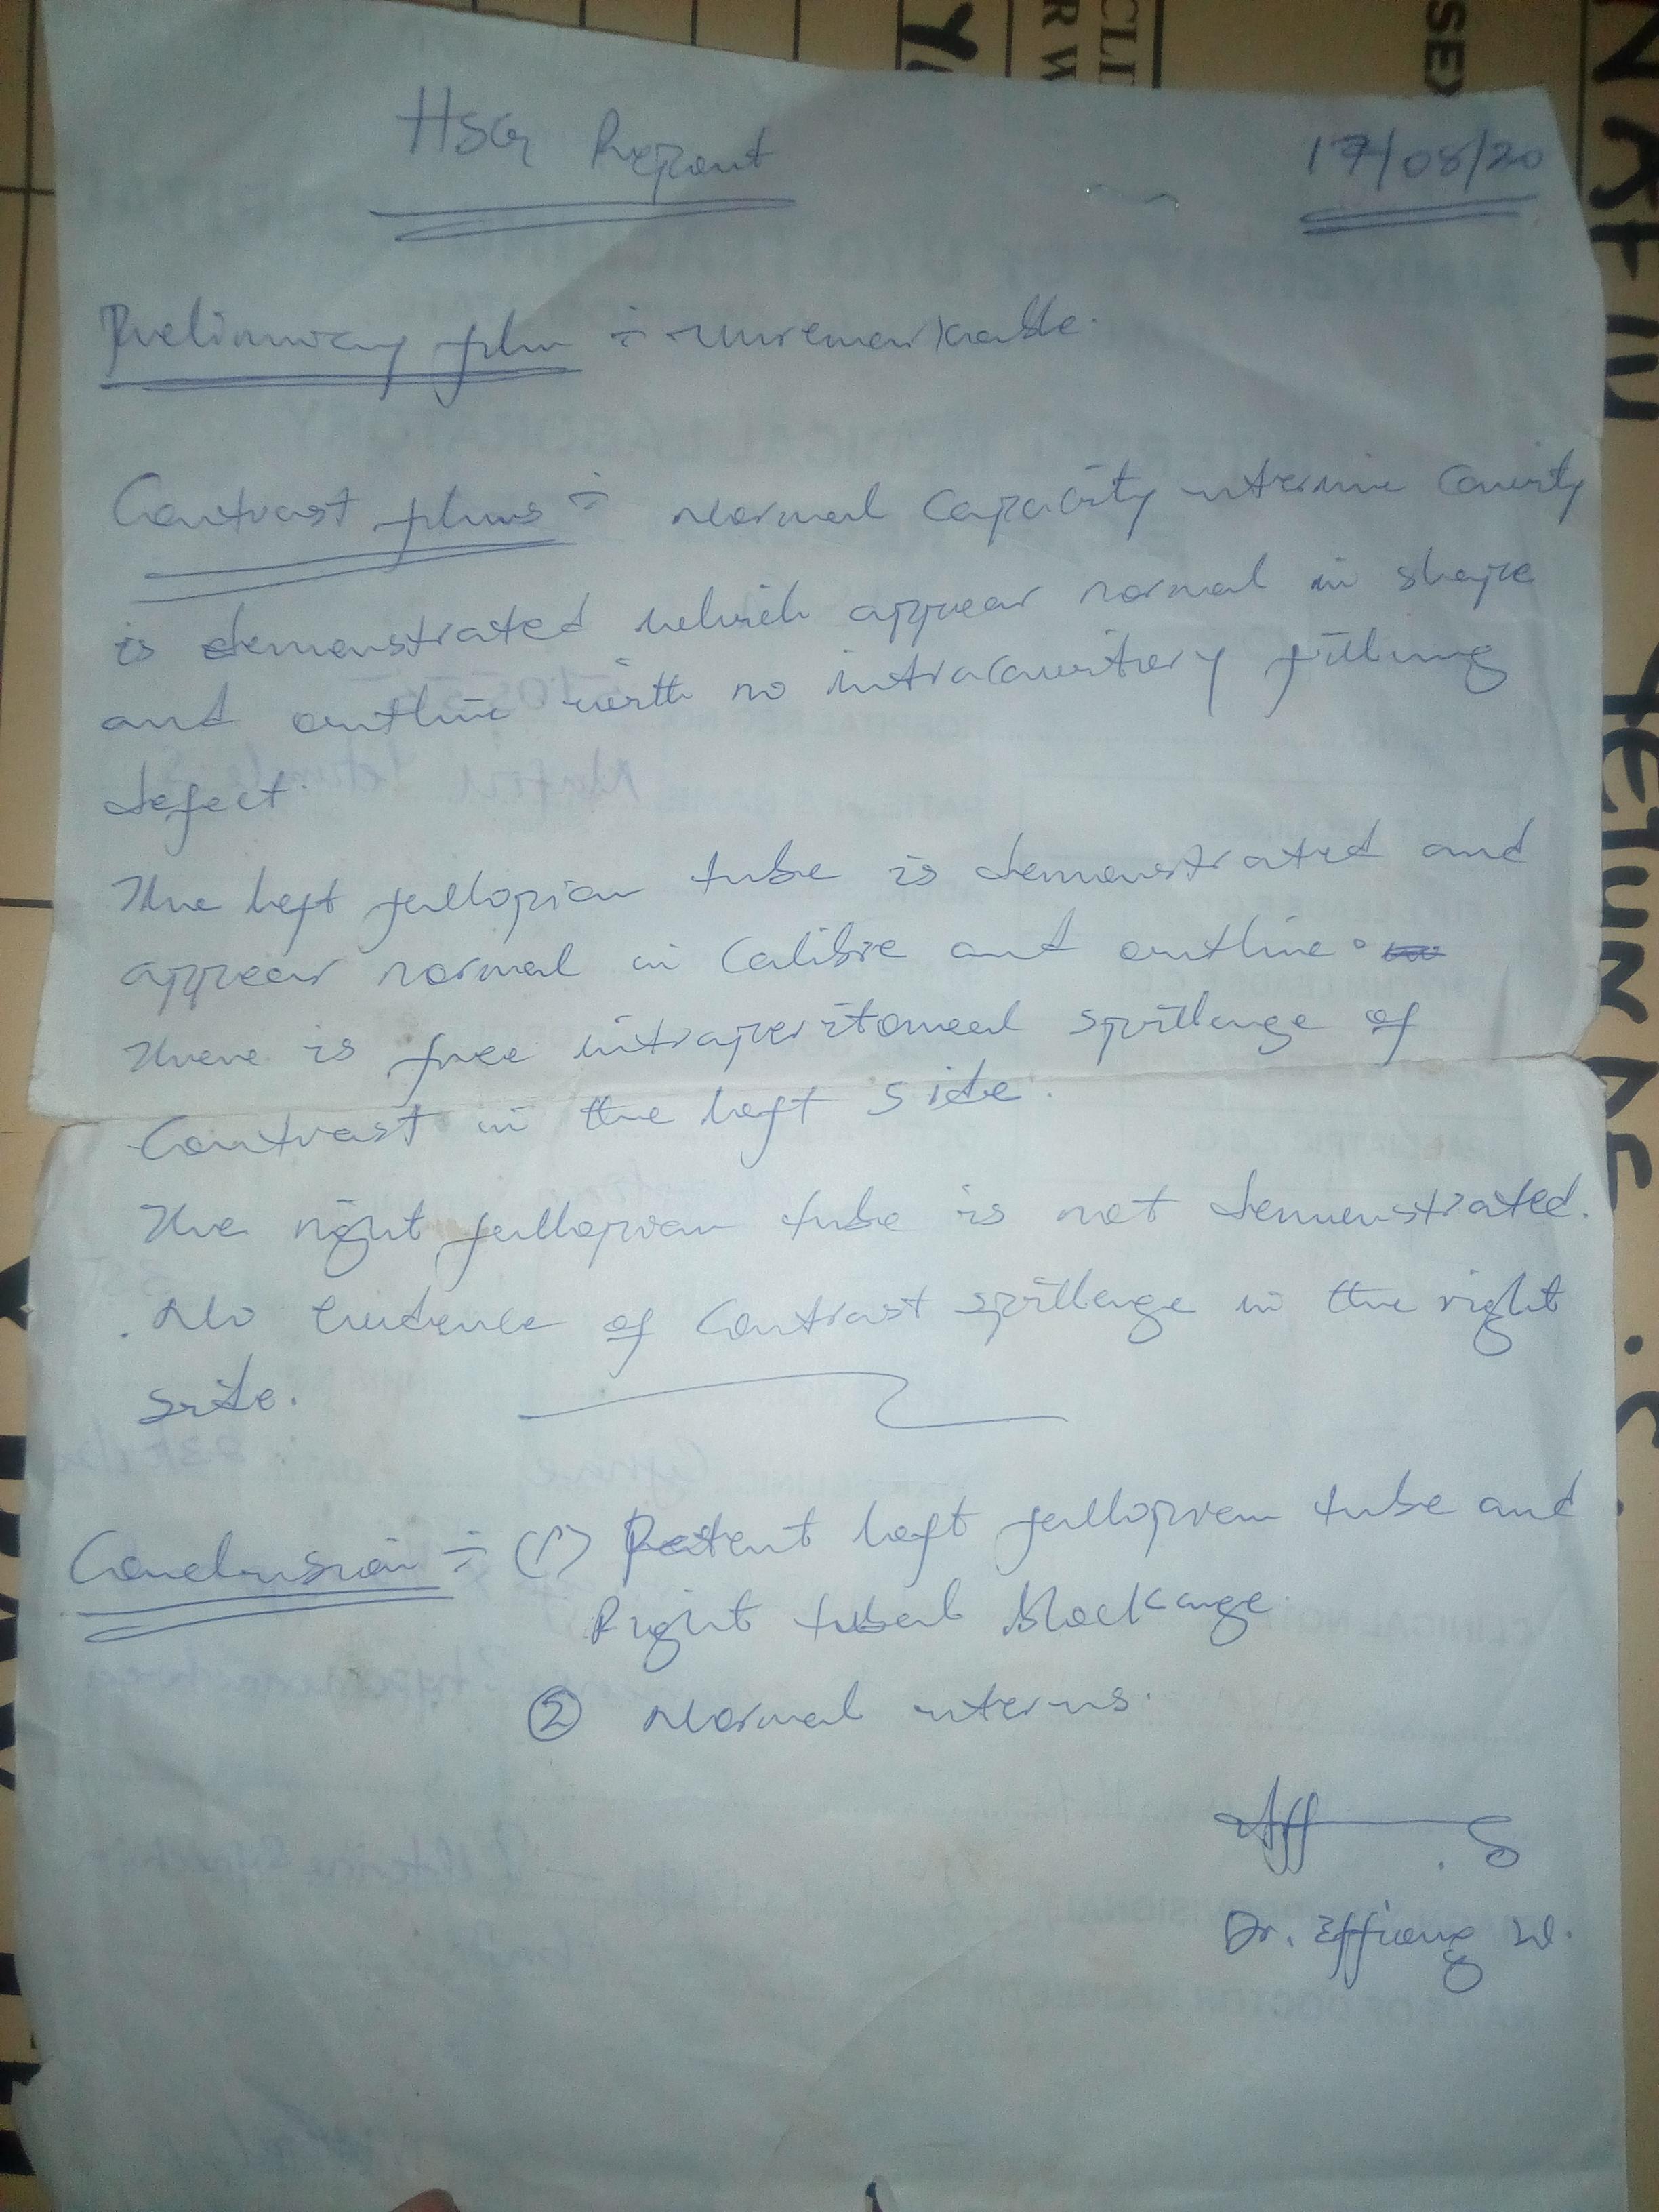 HSG Report
17/08/20
Preliminary film ÷ unremarkable.
Contrast films ÷ Normal Capacity uterine cavity
is demonstrated which appear normal in shape
and outline with no intracavitory filling
defect.
The left fallopian tube is demonstrated and
appear normal in Calibre and outline.
There is free intraperitoneal spillage of
Contrast in the left side.
The right fallopian tube is not demonstrated.
No Evidence of Contrast spillage in the right
side.
Conclusion ÷ (1) Patent left fallopian tube and
Right tubal blockage.
(2) Normal uterus.
Dr. Effiong W.
SEX
CLI
R W